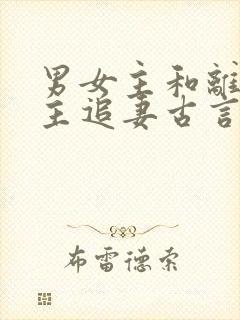 男女主和離
主追妻古言
布雷德索